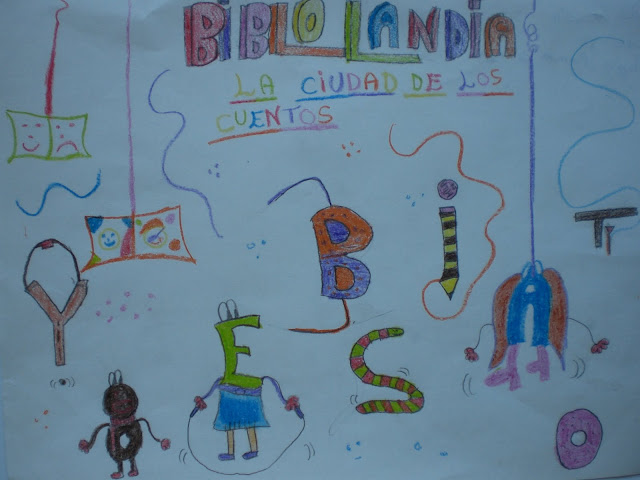 BIBLOLANDIA
LA CIUDAD DE LOS
CUENTOS
B i A T
Y E S
O O